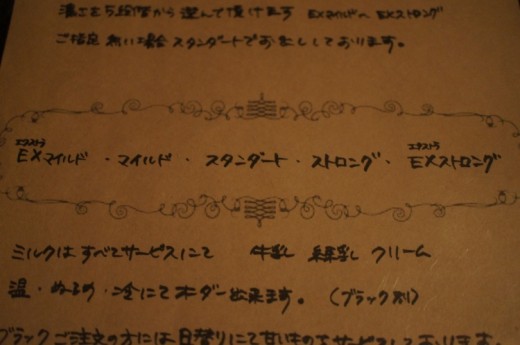 濃さを5段階から選んで頂けます EXマイルド〜EXストロング
ご指定無い場合スタンダードでお出ししております。
エクストラ エクストラ
EXマイルド・マイルド・スタンダード・ストロング・EXストロング
ミルクはすべてサービスにて 牛乳 練乳 クリーム
温・ぬるめ・冷にてオーダー出来ます。(ブラック別)
ブラックご注文の方には日替りにて甘いものをサービスしております。